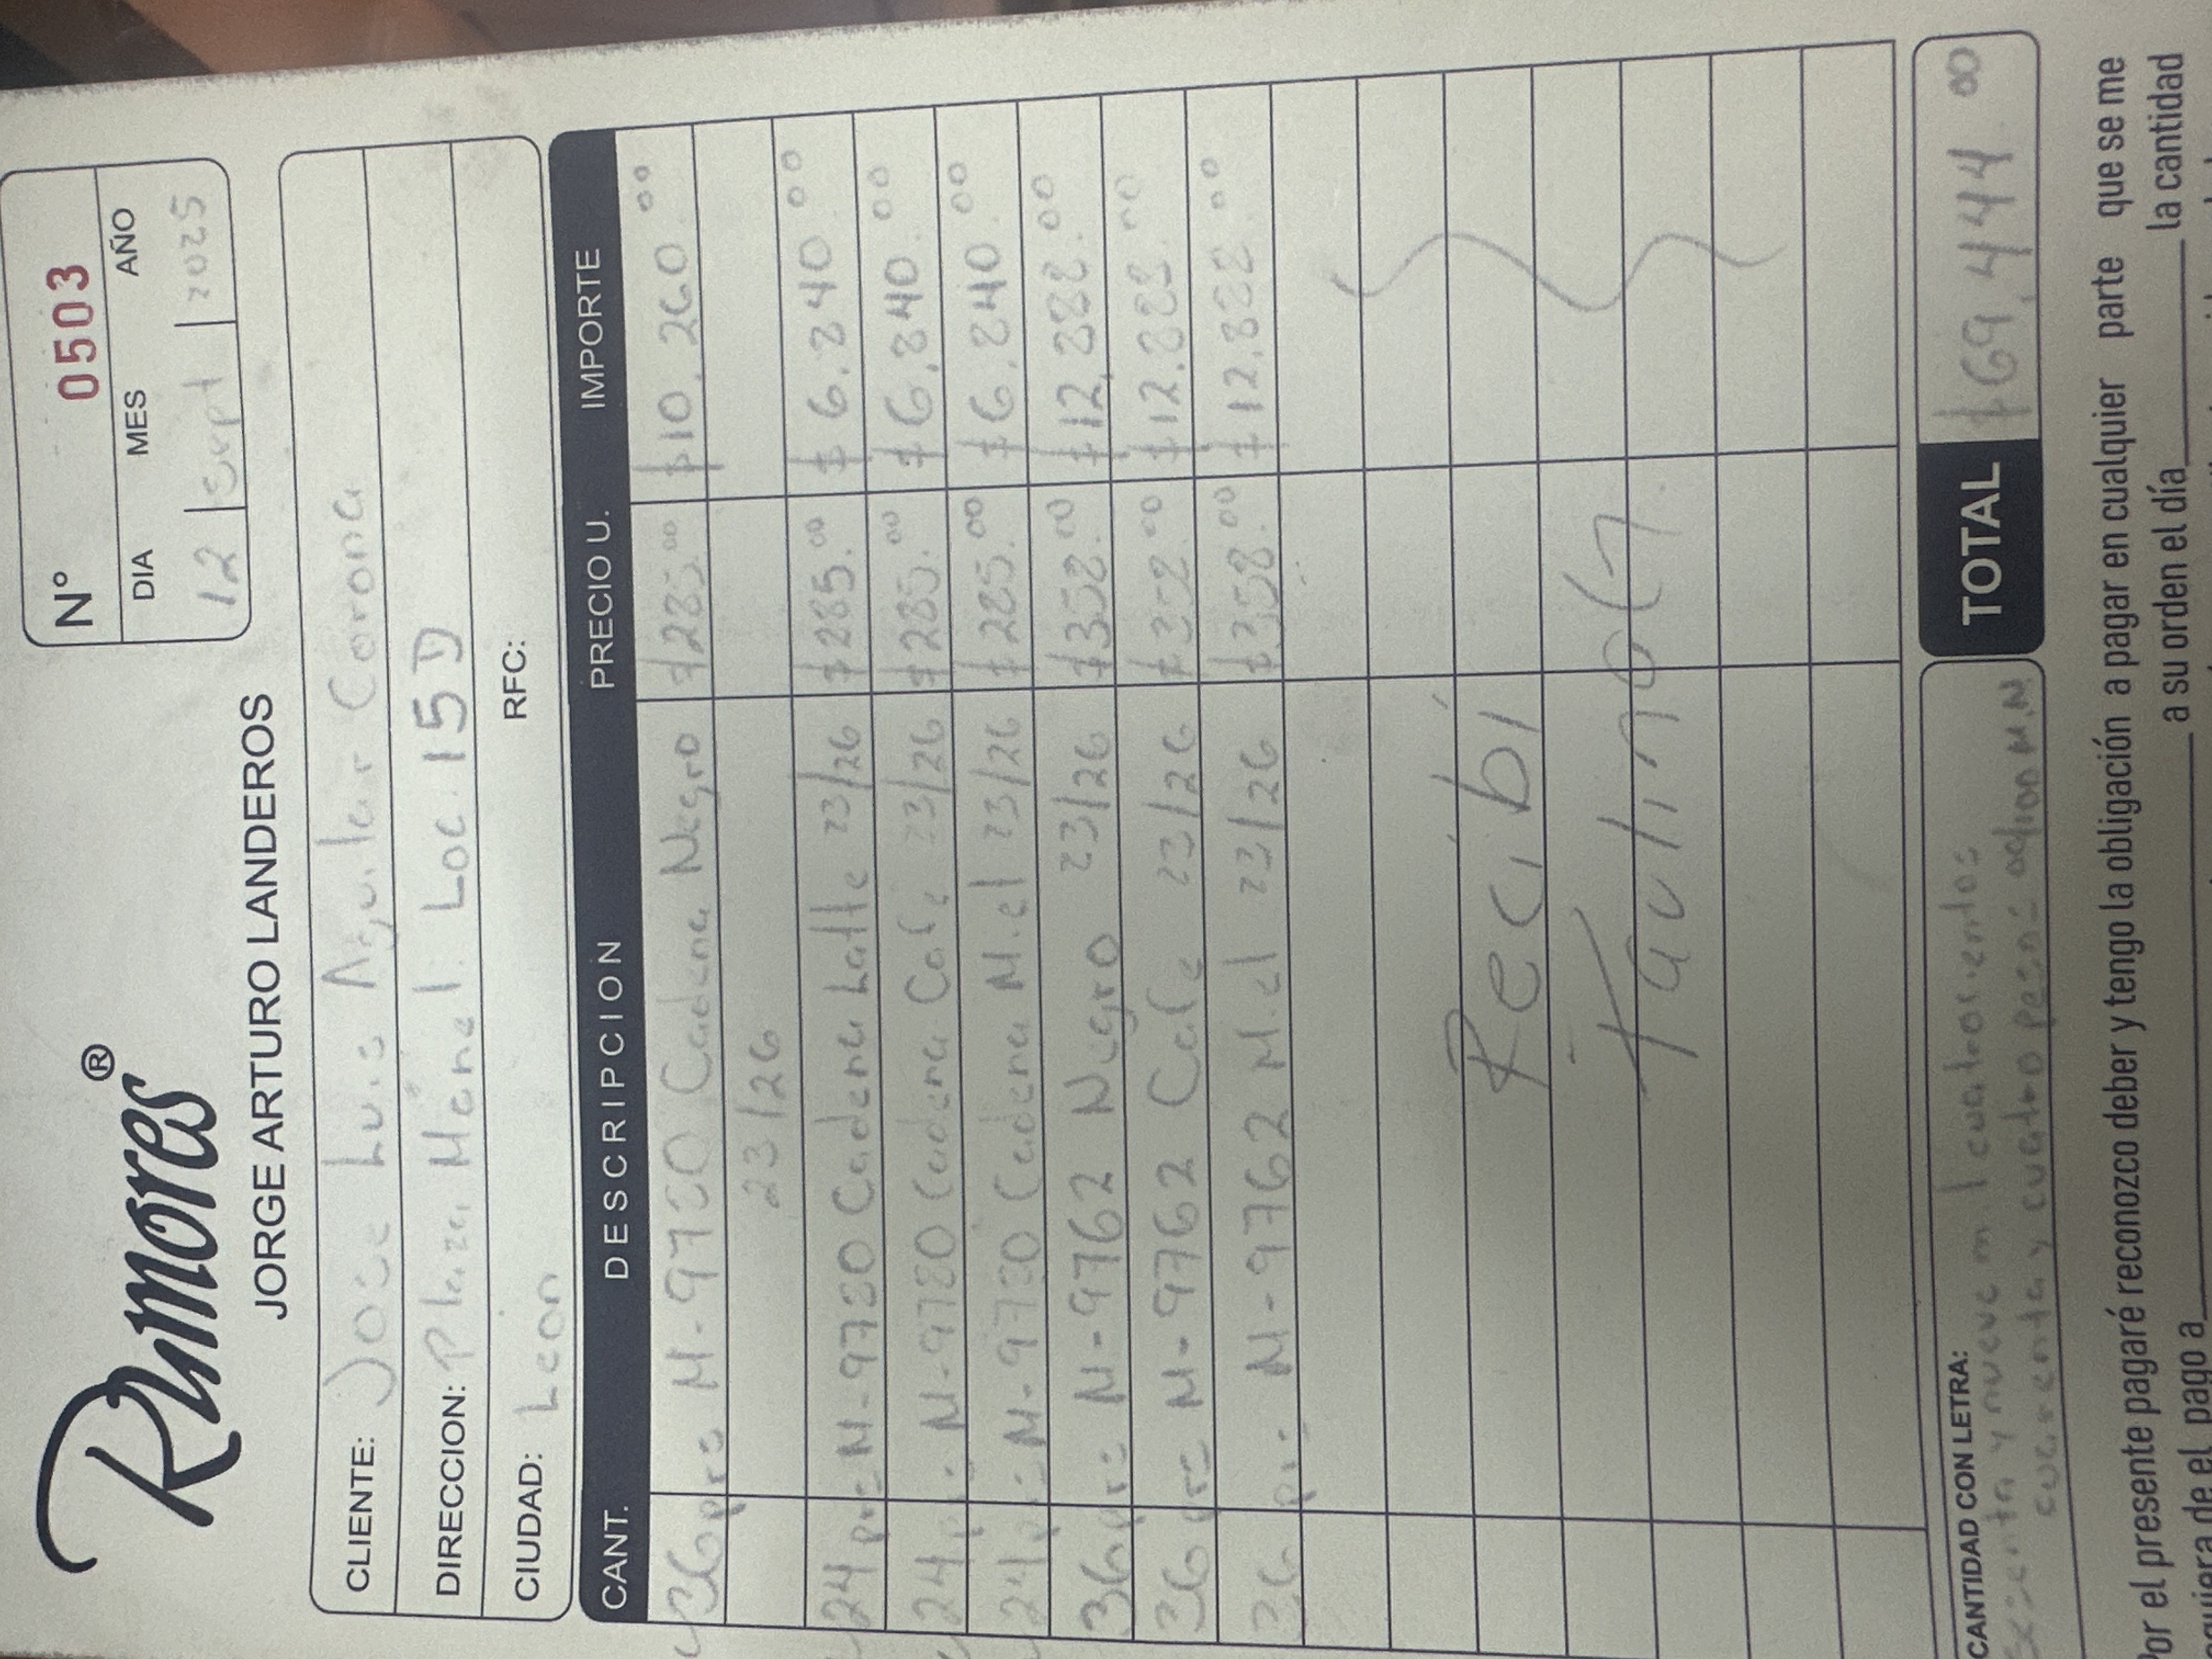 Rumores®
JORGE ARTURO LANDEROS
N° 0503
DIA MES AÑO
12 Sept 2025
CLIENTE: Jose Luis Aguilar Corona
DIRECCION: Plaza Maria 1: Loc. 15 D
CIUDAD: Leon RFC:
CANT. DESCRIPCION PRECIO U. IMPORTE
36 prs M-9780 Cadena Negro $285.00 $10,260.00
23/26
24 prs M-9780 Cadena Latte 23/26 $285.00 $6,840.00
24 prs M-9780 Cadena Cafe 23/26 $285.00 $6,840.00
24 prs M-9780 Cadena Miel 23/26 $285.00 $6,840.00
36 prs M-9762 Negro 23/26 $358.00 $12,888.00
36 prs M-9762 Cafe 23/26 $358.00 $12,888.00
36 prs M-9762 Miel 23/26 $358.00 $12,888.00
Recibí
TOTAL $69,444 00
CANTIDAD CON LETRA:
Sesenta y nueve mil cuatrocientos
cuarenta y cuatro pesos 00/100 M.N.
Por el presente pagaré reconozco deber y tengo la obligación a pagar en cualquier parte que se me
de el pago a a su orden el día la cantidad